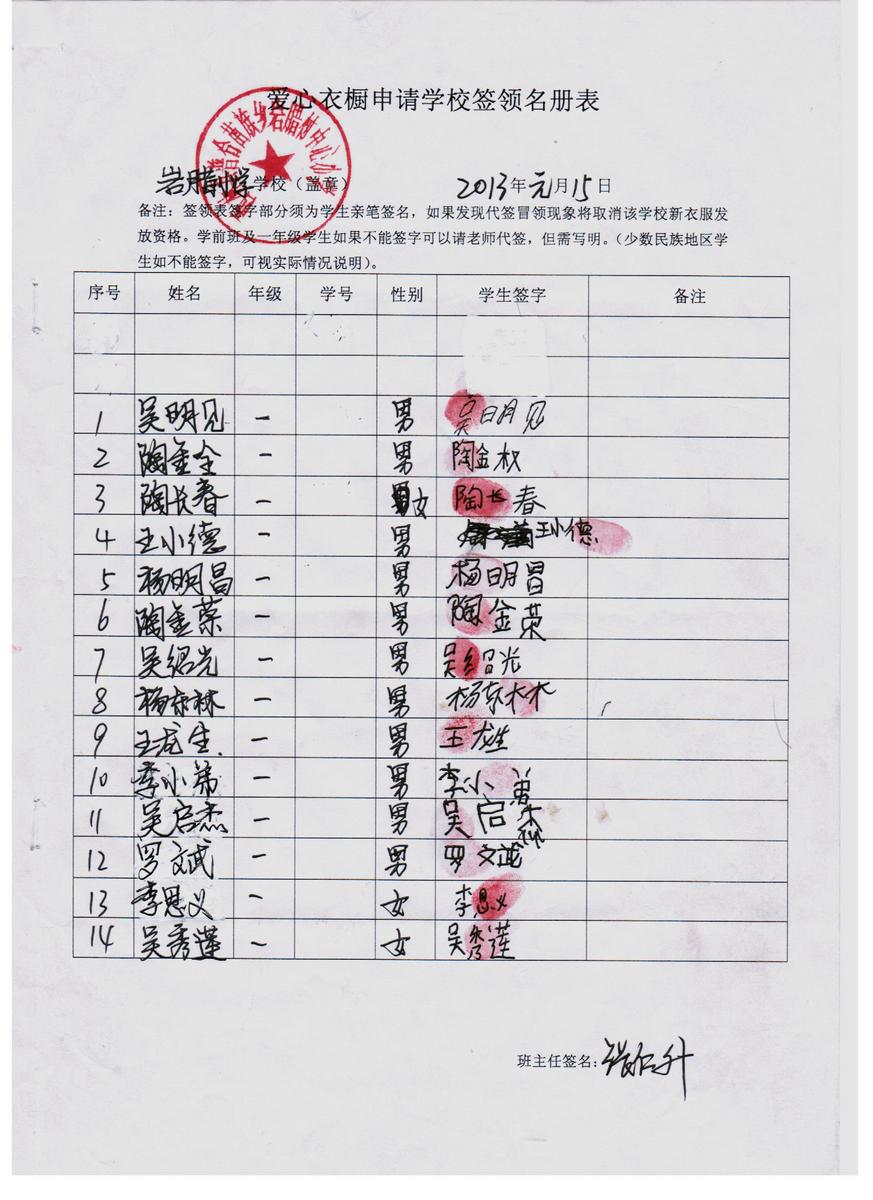 爱心衣橱申请学校签领名册表
岩腊小学学校（盖章） 2013年元月15日
备注：签领表签字部分须为学生亲笔签名，如果发现代签冒领现象将取消该学校新衣服发
放资格。学前班及一年级学生如果不能签字可以请老师代签，但需写明。（少数民族地区学
生如不能签字，可视实际情况说明）。
序号 姓名 年级 学号 性别 学生签字 备注
1 吴明见 一 男 吴明见
2 陶金全 一 男 陶金权
3 陶长春 一 女 陶长春
4 王小德 一 男 王小德
5 杨明昌 一 男 杨明昌
6 陶金荣 一 男 陶金荣
7 吴绍光 一 男 吴绍光
8 杨东林 一 男 杨东林
9 王龙生 一 男 王龙胜
10 李小弟 一 男 李小弟
11 吴启杰 一 男 吴启杰
12 罗文斌 一 男 罗文斌
13 李思义 一 女 李思义
14 吴秀莲 一 女 吴秀莲
班主任签名：